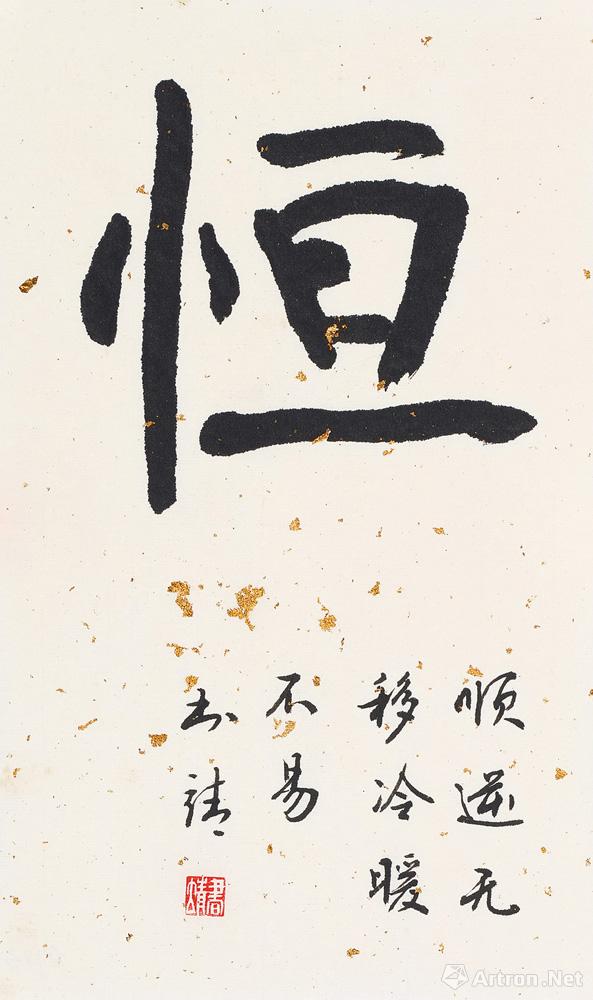 恒
顺逆无
移冷暖
不易
书靖
書靖
Artron.Net